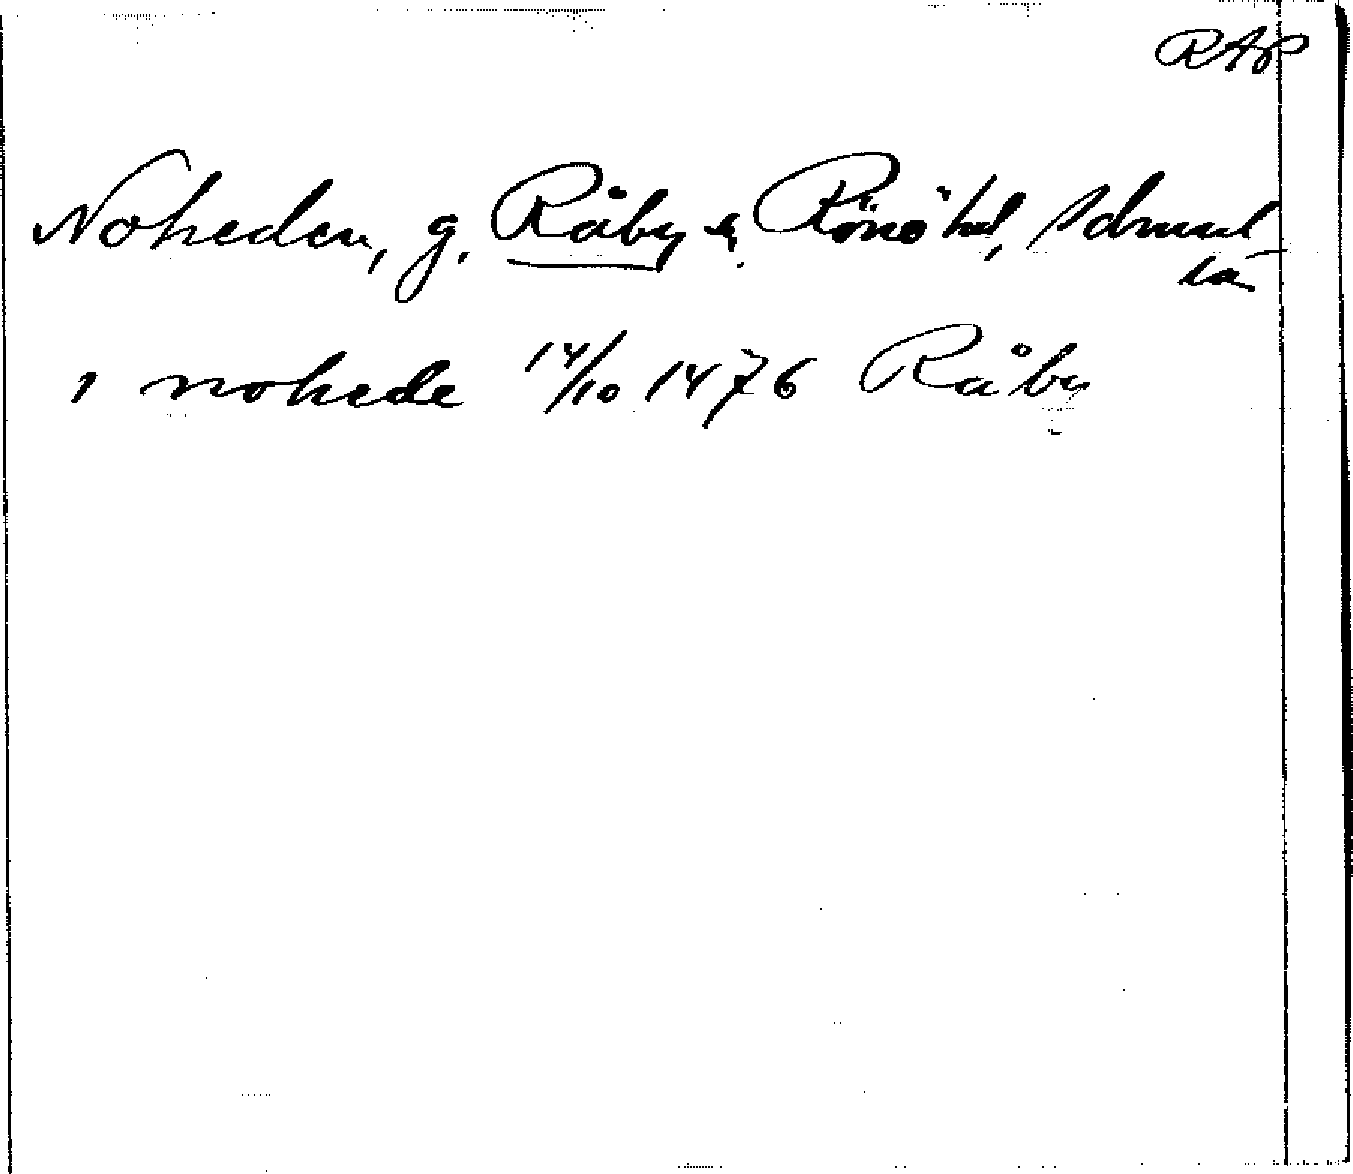 RAp
Noheden, g. Råby s. Rönö hd, Södmanl
la
i nohede 14/10 1476 Råby